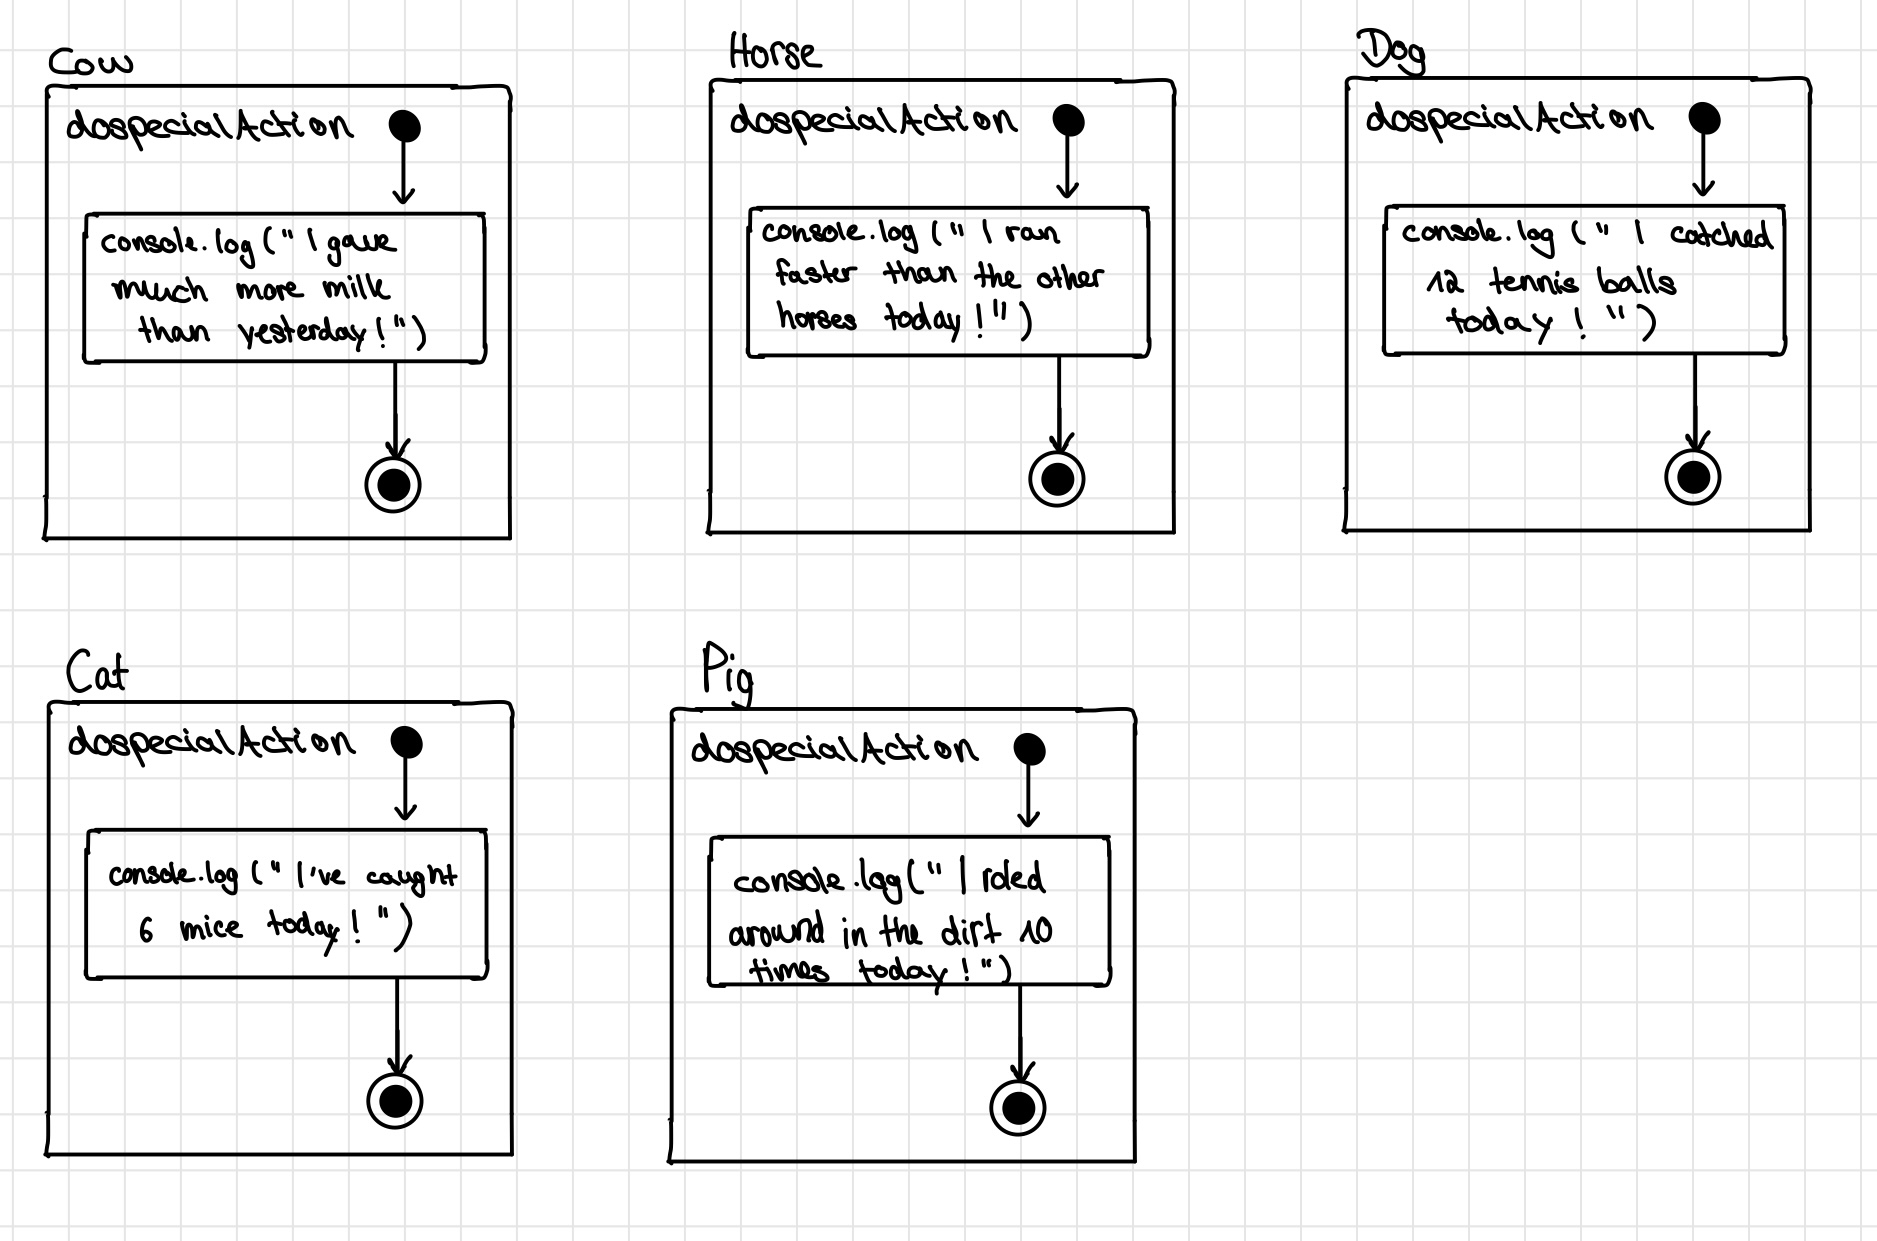 Cow
dospecialAction
console.log (" I gave
much more milk
than yesterday!")
Horse
dospecialAction
console.log (" I ran
faster than the other
horses today!")
Dog
dospecialAction
console.log (" I catched
12 tennis balls
today! ")
Cat
dospecialAction
console.log (" I've caught
6 mice today! ")
Pig
dospecialAction
console.log(" I roled
around in the dirt 10
times today!")